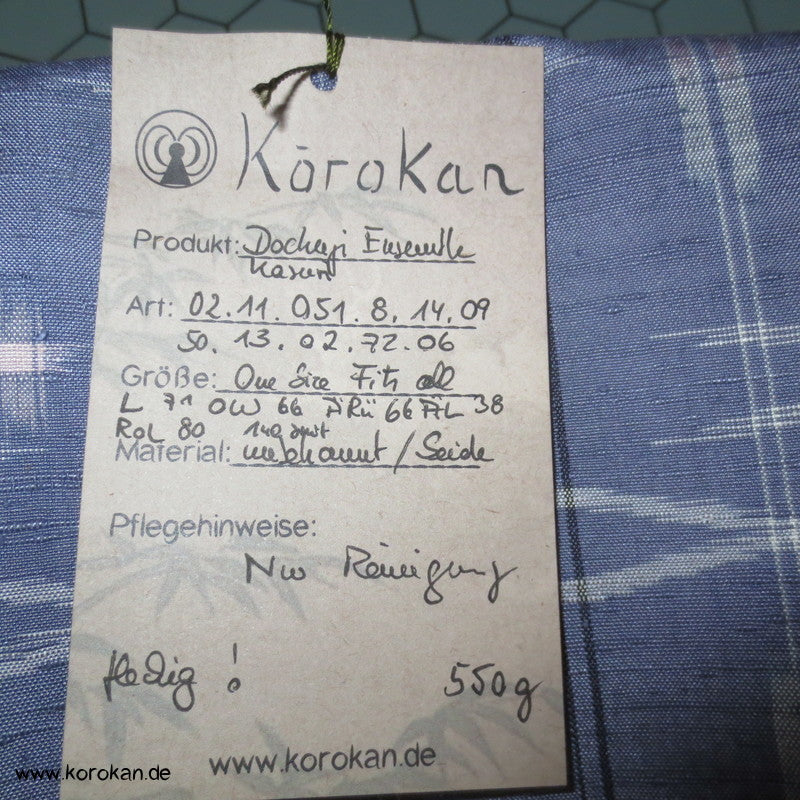 Kōrokan
Produkt: Ensemble
Kasuri
Art: 02.11.051.8.14.09
50.13.02.72.06
Größe: One Size Fits all
L 71 OW 66 ÄRü 66 ÄL 38
RoL 80 140
Material: unbekannt / Seide
Pflegehinweise:
Nur Reinigung
fleckig!
550g
www.korokan.de
www.korokan.de